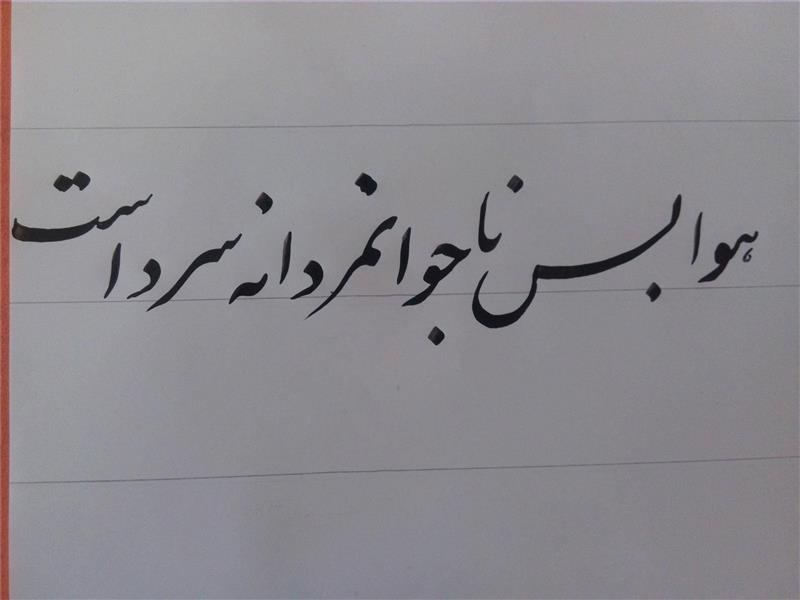 هوا بس ناجوانمردانه سرد است